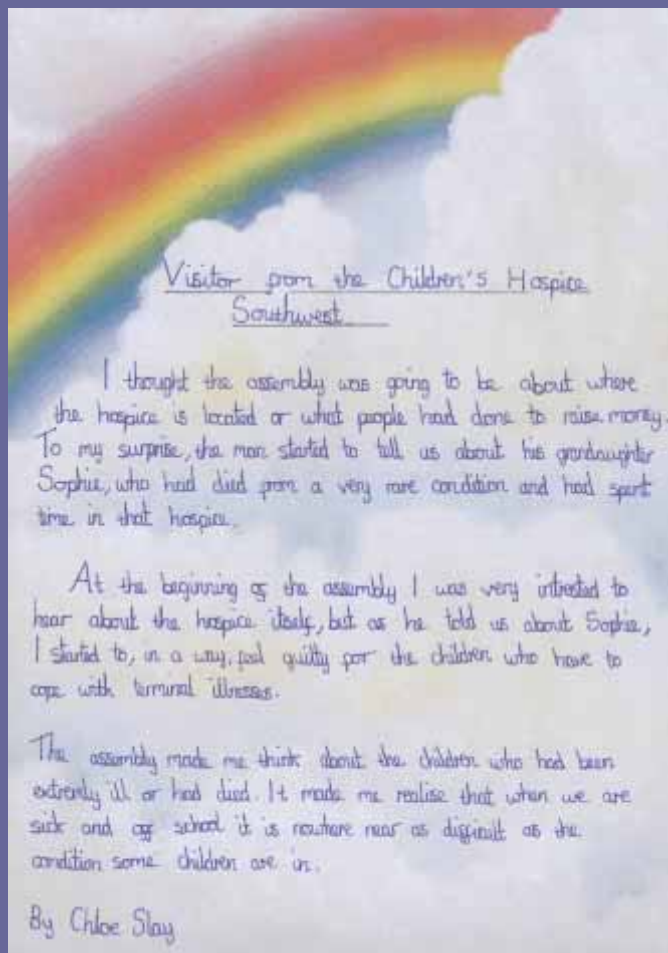 Visitor from the Children's Hospice
Southwest
I thought the assembly was going to be about where
the hospice is located or what people had done to raise money.
To my surprise, the man started to tell us about his grandaughter
Sophie, who had died from a very rare condition and had spent
time in that hospice.
At the beginning of the assembly I was very intrested to
hear about the hospice itself, but as he told us about Sophie,
I started to, in a way, feel guilty for the children who have to
cope with terminal illnesses.
The assembly made me think about the children who had been
extremly ill or had died. It made me realise that when we are
sick and off school it is nowhere near as difficult as the
condition some children are in.
By Chloe Slay